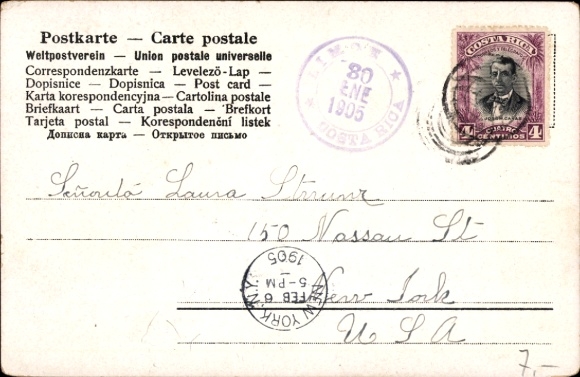 Postkarte — Carte postale
Weltpostverein — Union postale universelle
Correspondenzkarte — Levelező-Lap —
Dopisnice — Dopisnica — Post card —
Karta korespondencyjna — Cartolina postale
Briefkaart — Carta postala — Brefkort
Tarjeta postal — Korespondenční listek
Дописна карта — Открытое письмо
LIMON
30
ENE
1905
COSTA RICA
COSTA RICA
4 CUATRO 4
CENTIMOS
Señorita Laura
150 Nassau St
New York
U S A
NEW YORK, N.Y.
FEB 6
5-PM
1905
7,-